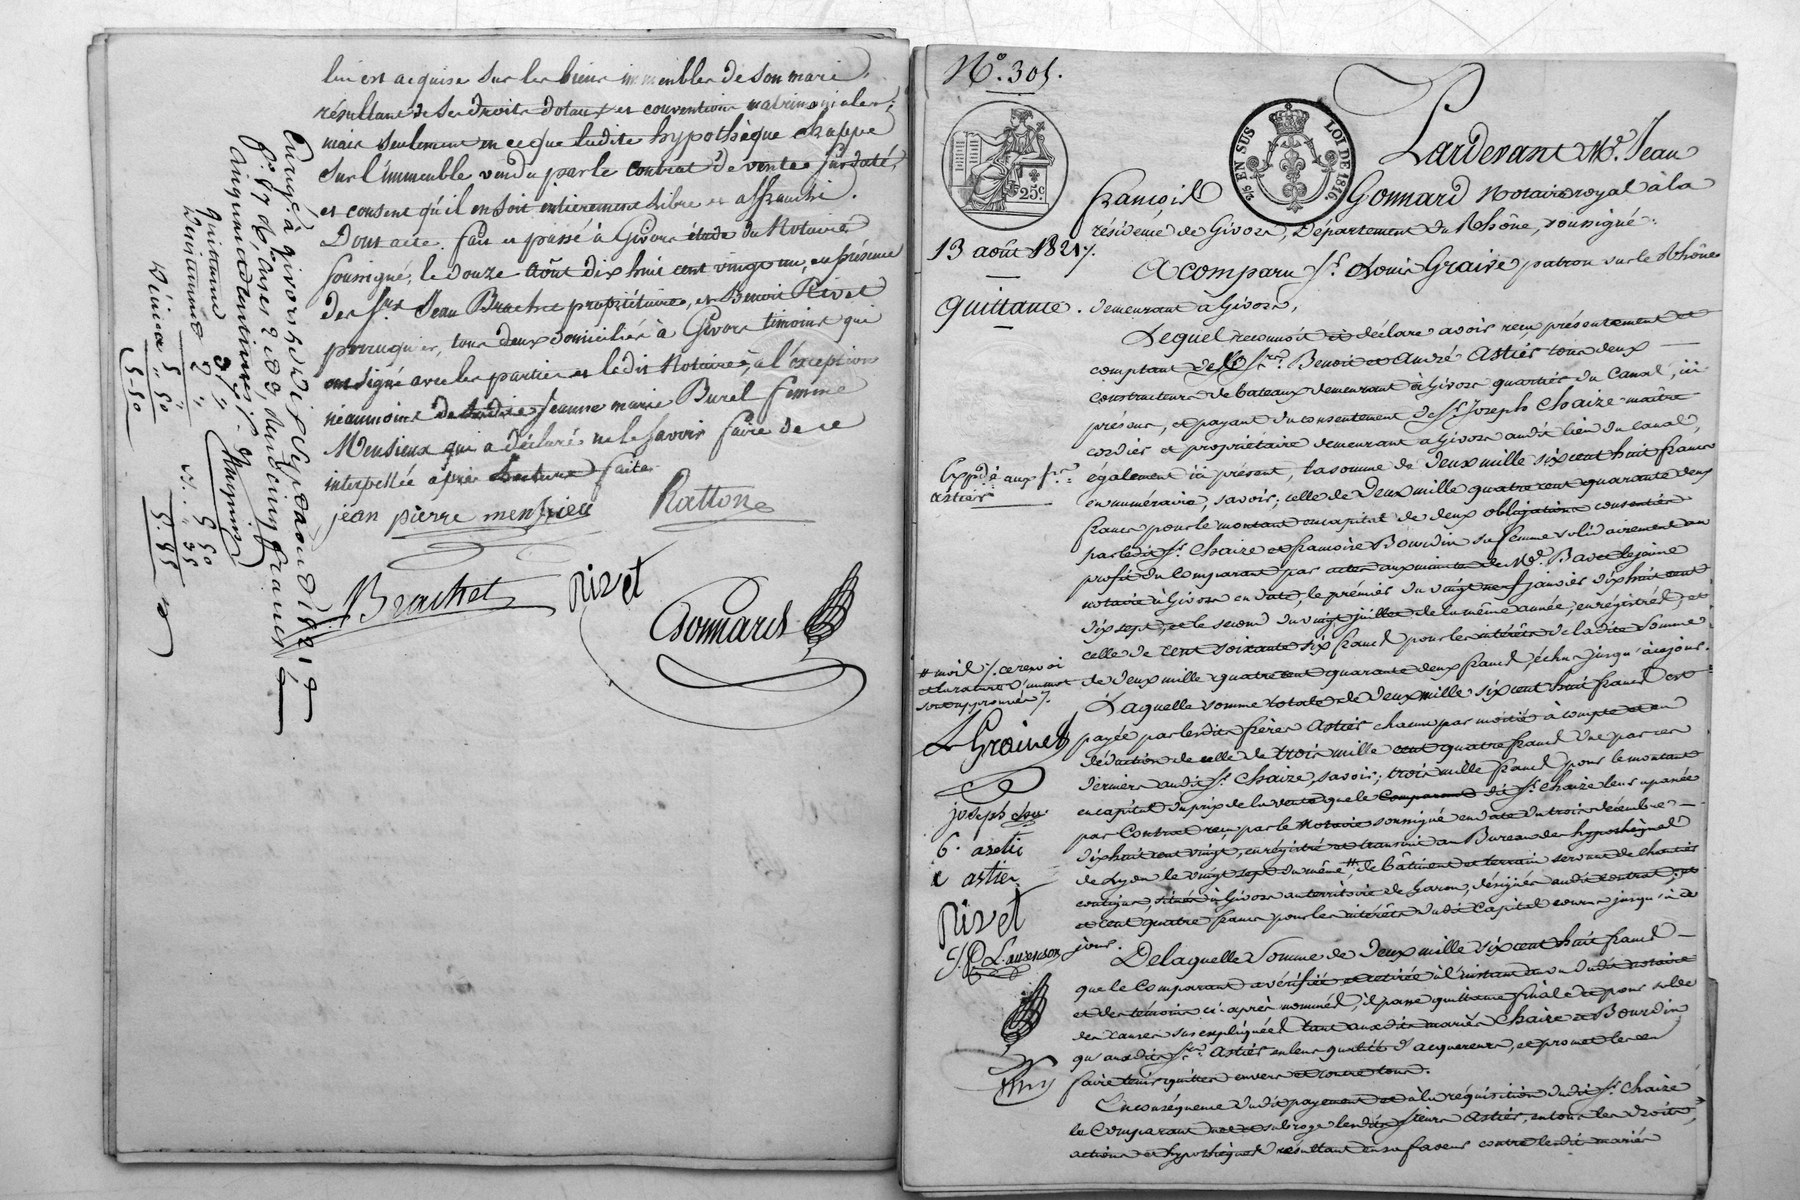 lui est acquise sur les biens immeubles de son mari
résultant de ses droits dotaux et conventions matrimoniales;
mais seulement en ce que ladite hypothèque frappe
sur l'immeuble vendu par le contrat de vente susdaté,
et consent qu'il en soit entièrement libre et affranchi.
Dont acte. fait et passé à Givors étude du Notaire
soussigné, le douze août dix huit cent vingt un, en présence
des srs Jean Brachet propriétaire, et Benoit Rivet
perruquier, tous deux domiciliés à Givors témoins qui
ont signé avec les parties et ledit Notaire, à l'exception
néanmoins de ladite Jeanne marie Burel femme
Mensieux qui a déclaré ne le savoir faire de ce
interpellée après lecture faite.
jean pierre mensieu
Rattone
Brachet
Rivet
Gonnard
Enregé à givors le dix sept août 1821
cinquante centimes
Quittance
Dixième 5 „ 50
5-50
N° 305.
25 c.
2/5 EN SUS LOI DE 1816.
13 août 1821.
Quittance.
Expé aux srs
astier
Pardevant Me. Jean
françois Gonnard Notaire royal à la
résidence de Givors, Département du Rhône, soussigné.
A comparu sr. Louis Graive patron sur le Rhône
demeurant à Givors,
Lequel reconnoit et déclare avoir reçu présentement et
comptant des srs. Benoit et André Astier tous deux
constructeurs de bateaux demeurant à Givors quartier du Canal, ici
présens, et payant du consentement de sr. Joseph Chaize maître
cordier et propriétaire demeurant à Givors audit lieu du canal,
également ici présent, la somme de deux mille six cent huit francs
en numéraire, savoir; celle de deux mille quatre cent quarante deux
francs pour le montant en capital de deux obligations consenties
par ledit sr. Chaize et françoise Bourdin sa femme solidairement au
profit du Comparant par actes aux minutes de Me. Bavet lejeune
notaire à Givors en date, le premier du vingt neuf janvier dix huit cent
dix sept, et le second du vingt juillet de la même année, enregistrés, et
celle de cent soixante six francs pour les intérêts de ladite somme
de deux mille quatre cent quarante deux francs, échus jusqu'à ce jour.
Laquelle somme totale de deux mille six cent huit francs est
payée par lesdits frères Astier chacun par moitié à compte et en
déduction de celle de trois mille cent quatre francs due par ces
derniers audit sr. Chaize, savoir; trois mille francs pour le montant
en capital du prix de la vente que le Comparant dit sr. Chaize leur a passée
par Contrat reçu par le Notaire soussigné en date du trois décembre
dix huit cent vingt, enregistré et transcrit au Bureau des hypothèques
de Lyon le vingt sept du même, # de bâtiment et terrain servant de chantier
contigus, situés à Givors au territoire de Garon, désignés audit contrat; et
et cent quatre francs pour les intérêts dudit Capital courus jusqu'à ce
jour.
De laquelle somme de deux mille six cent huit francs
que le Comparant a vérifiée et retirée à l'instant au vu dudit notaire
et des témoins ci-après nommés, il passe quittance finale et pour solde
des causes sus expliquées tant auxdits mariés Chaize et Bourdin
qu'auxdits srs. Astier en leur qualité d'acquéreurs, et promet les en
faire tenir quittes envers et contre tous.
En conséquence dudit payement et à la réquisition dudit sr. Chaize
le Comparant subroge lesdits sieurs Astier, en tous les droits,
actions et hypothèques résultant en sa faveur contre lesdits mariés
# mois /. ce renvoi
et la rature d'un mot
sont approuvés /.
L Graive
joseph
b. astie
a astier
Rivet